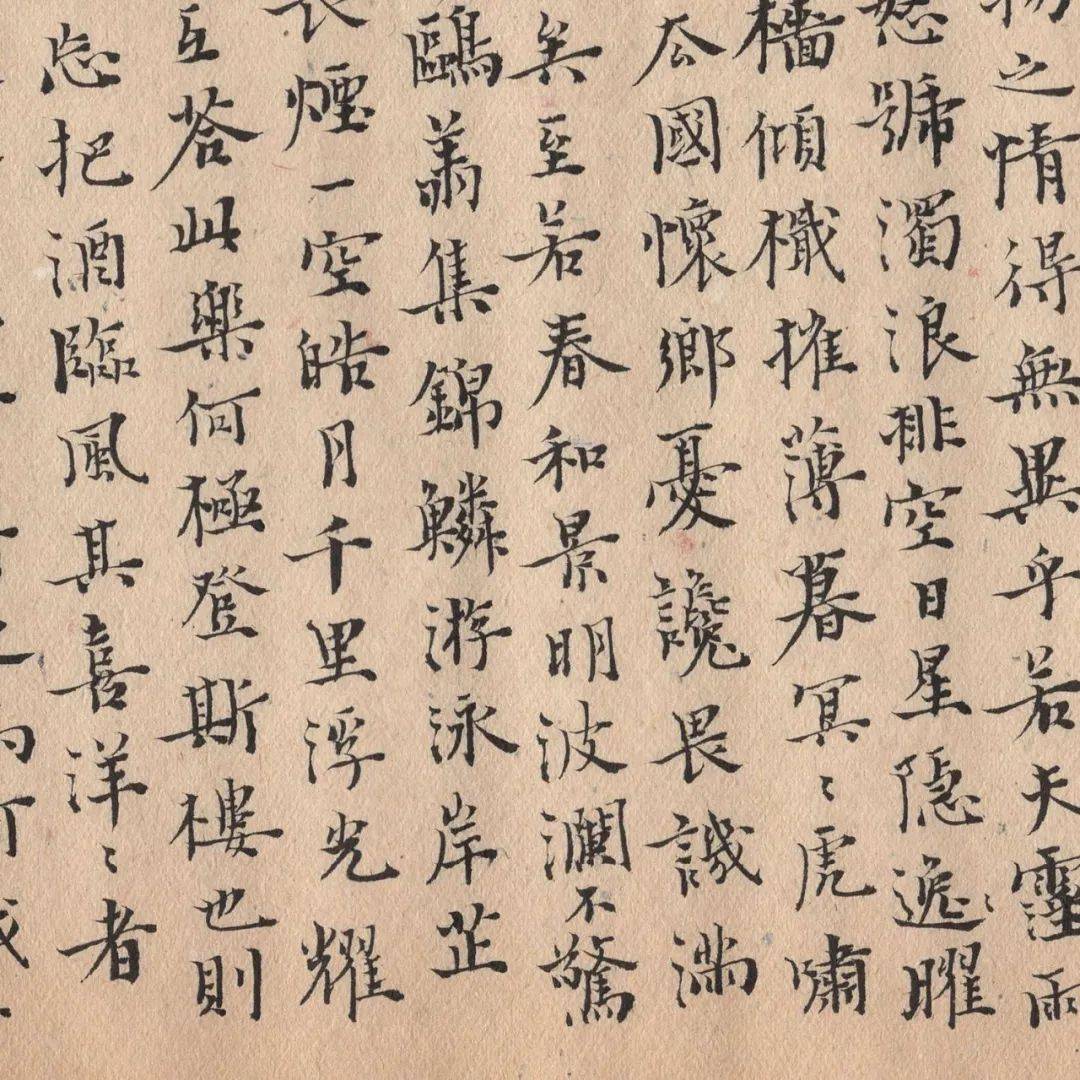 物之情得無異乎若夫霪雨
怒號濁浪排空日星隐逸曜
檣傾檝摧薄暮冥〻虎嘯
去國懷鄉憂讒畏譏滿
矣至若春和景明波瀾不驚
鷗翔集錦鱗游泳岸芷
長煙一空皓月千里浮光耀
互荅此樂何極登斯樓也則
忘把酒臨風其喜洋〻者